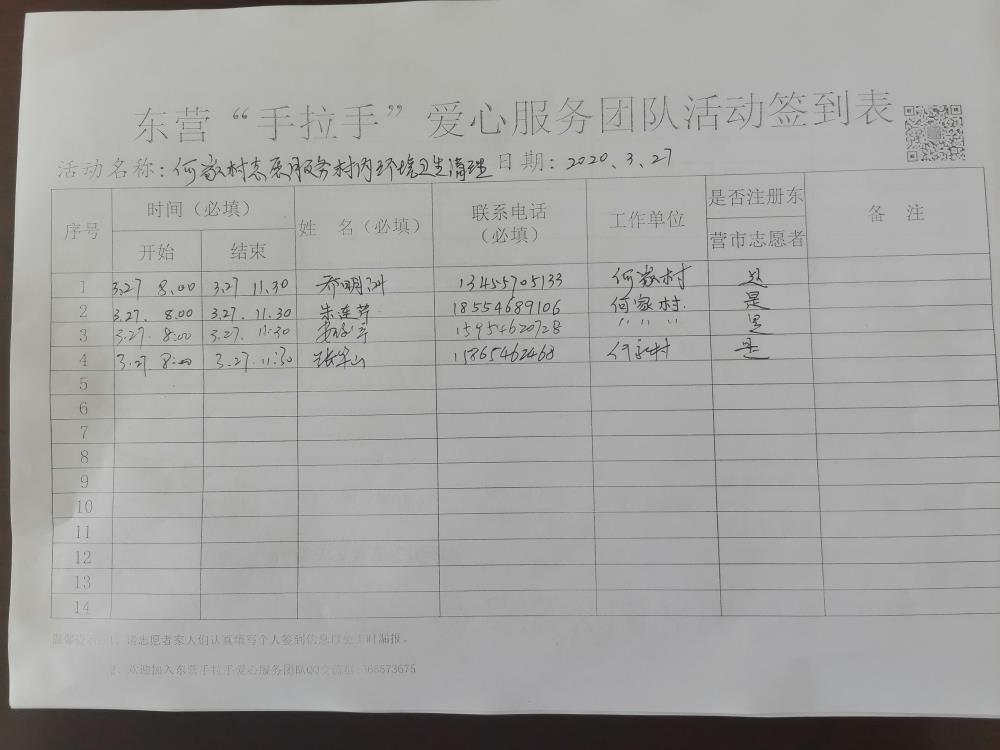 东营“手拉手”爱心服务团队活动签到表
活动名称：何家村志愿服务村内环境卫生清理 日期：2020.3.27
序号 时间（必填） 姓 名（必填） 联系电话（必填） 工作单位 是否注册东营市志愿者 备 注
开始 结束
1 3.27 8.00 3.27 11.30 13455705133 何家村 是
2 3.27. 8.00 3.27. 11.30 朱连芹 18554689106 何家村. 是
3 3.27. 8:00 3.27. 11:30 15954620728 〃 〃 〃 是
4 3.27 8:00 3.27. 11:30 张华山 15865462468 何家村 是
5
6
7
8
9
10
11
12
13
14
温馨提示：1、请志愿者家人们认真填写个人签到信息以免工时漏报。
2、欢迎加入东营手拉手爱心服务团队QQ交流群 365573675